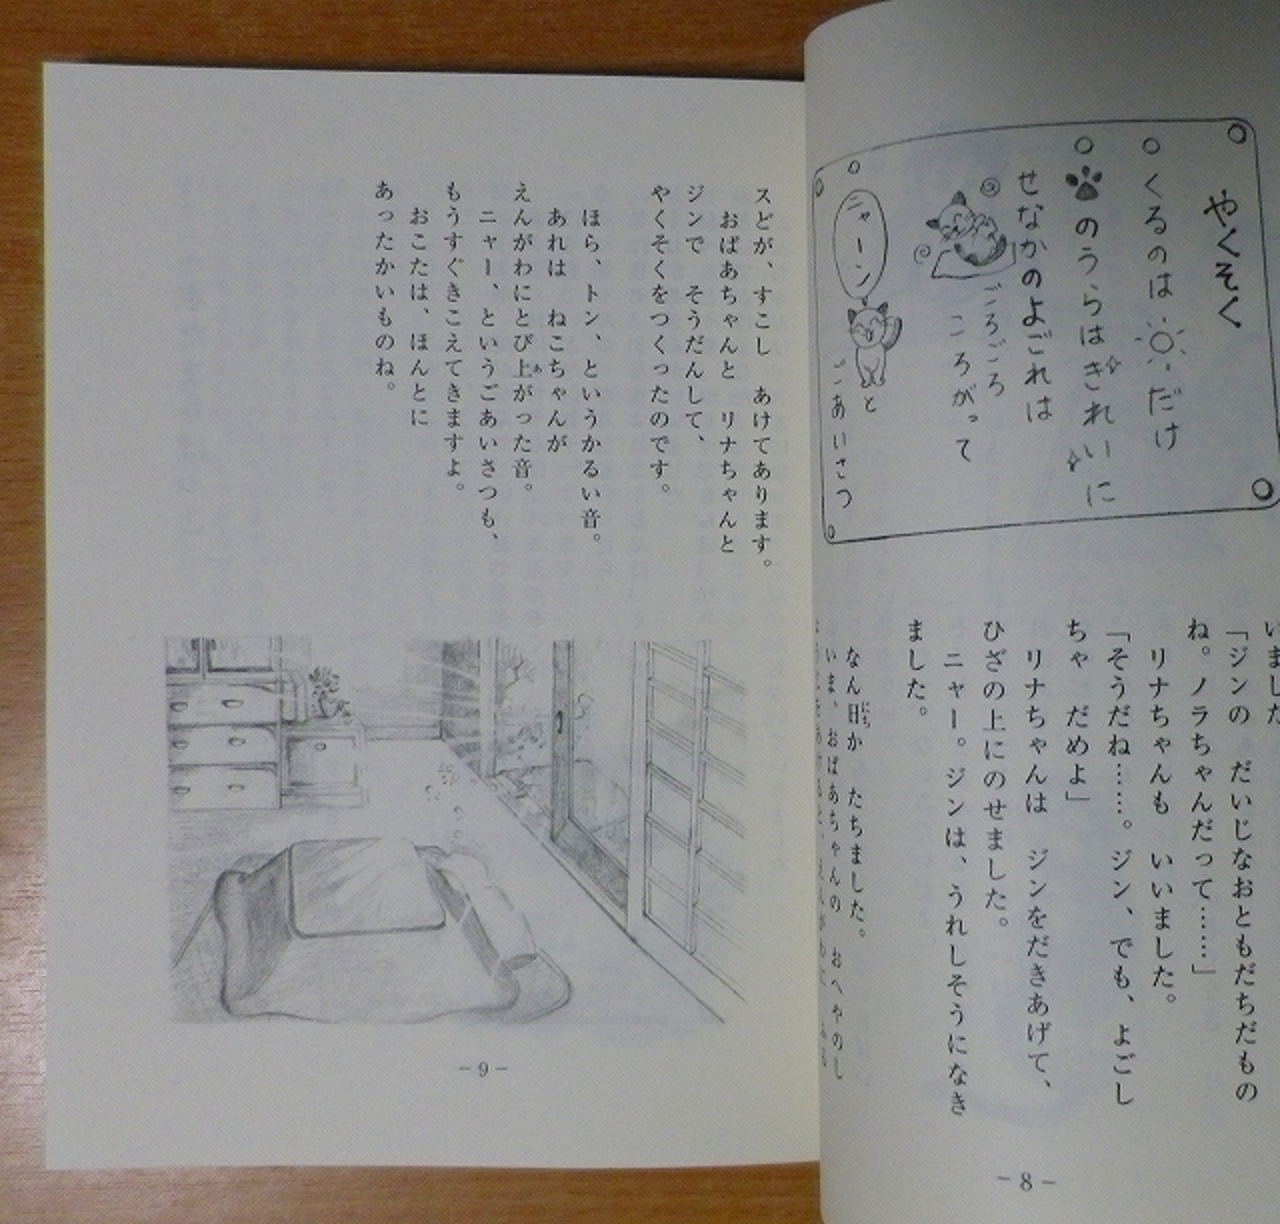 やくそく
くるのは だけ
のうらはきれいに
せなかのよごれは
ごろごろ
ころがって
ニャーン
と
ごあいさつ
いました
「ジンの だいじなおともだちだもの
ね。ノラちゃんだって……」
リナちゃんも いいました。
「そうだね……。ジン、でも、よごし
ちゃ だめよ」
リナちゃんは ジンをだきあげて、
ひざの上にのせました。
ニャー。ジンは、うれしそうになき
ました。
なん日か たちました。
にち
いま、おばあちゃんの おへやのし
－8－
スどが、すこし あけてあります。
おばあちゃんと リナちゃんと
ジンで そうだんして、
やくそくをつくったのです。
ほら、トン、というかるい音。
あれは ねこちゃんが
えんがわにとび上がった音。
あ
ニャー、というごあいさつも、
もうすぐきこえてきますよ。
おこたは、ほんとに
あったかいものね。
－9－